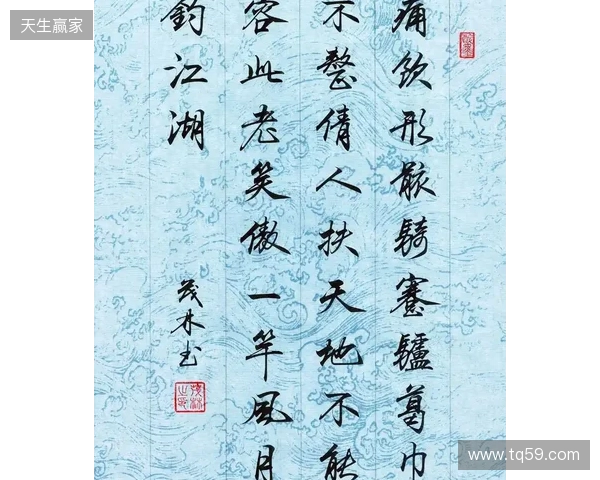 天生赢家
痛飲形骸騎蹇驢葛巾
不整倩人扶天地不能
容此老笑傲一竿風月
釣江湖
茂林书
www.tq59.com